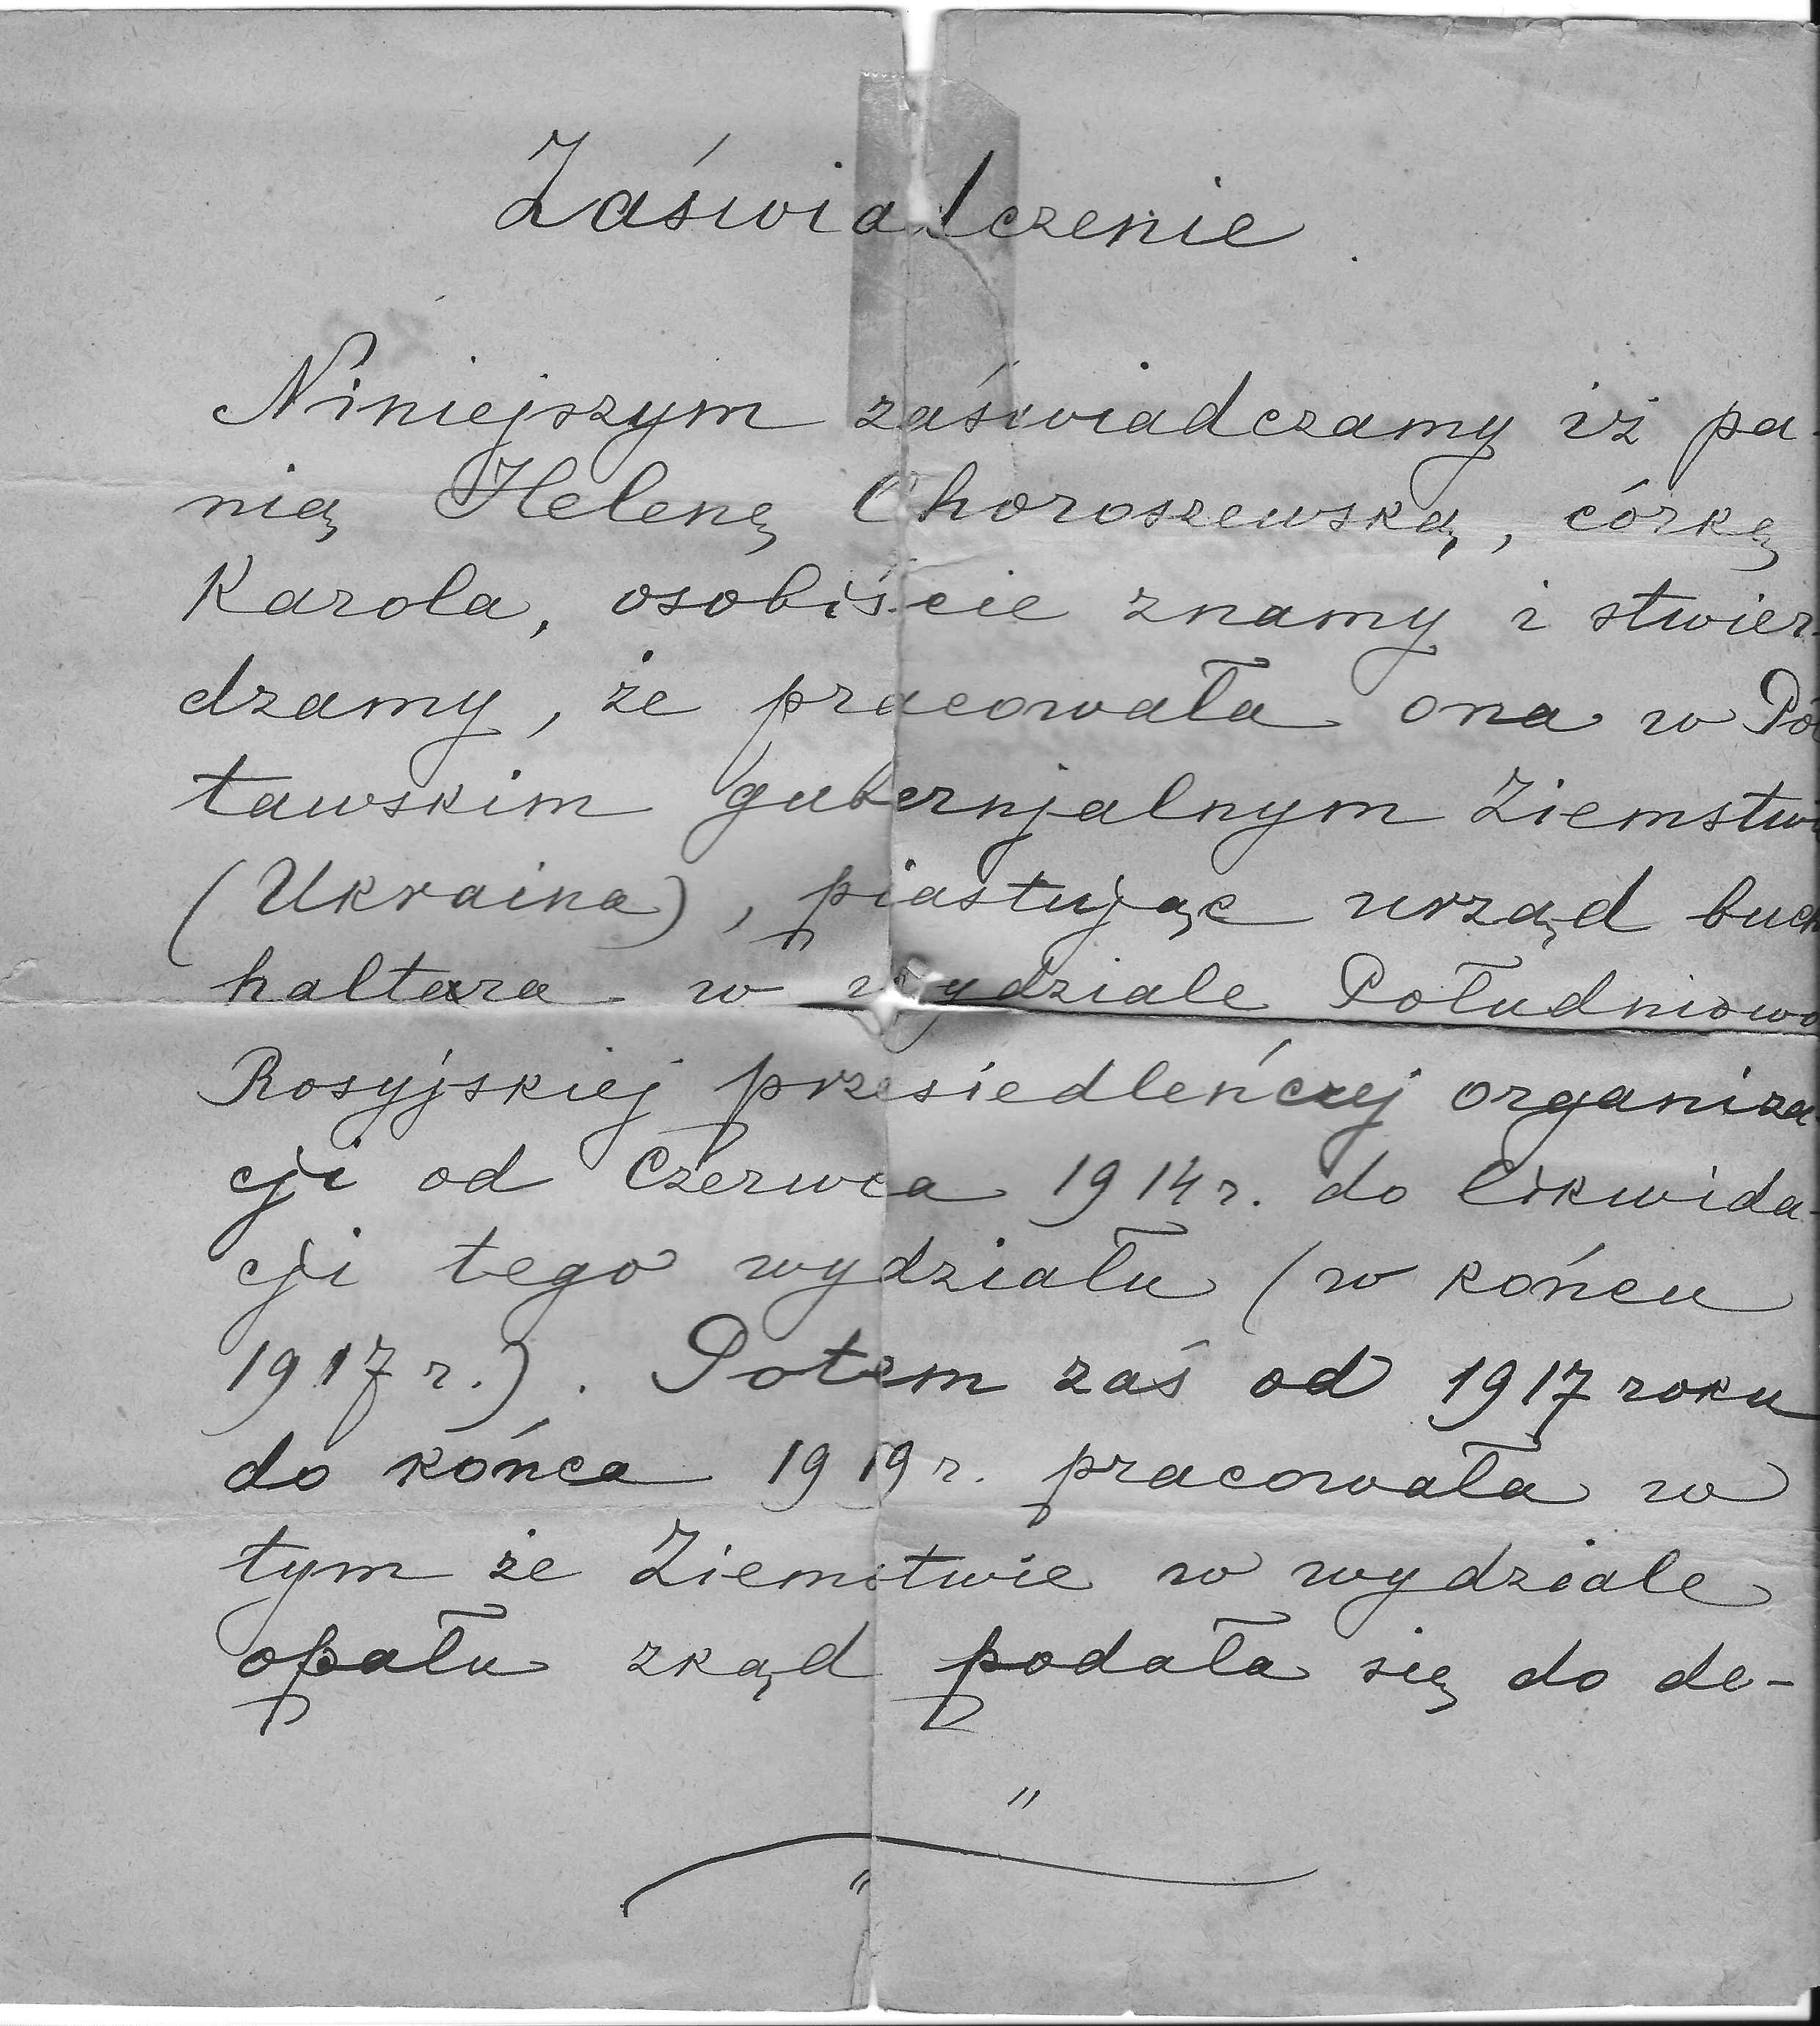 Zaświadczenie.
Niniejszym zaświadczamy iż pa-
nią Helenę Choroszewską, córkę
Karola, osobiście znamy i stwier-
dzamy, że pracowała ona w Poł
tawskim gubernjalnym Ziemstwi
(Ukraina), piastując urząd buch
haltera w wydziale Południowo
Rosyjskiej przesiedleńczej organiza-
cji od Czerwca 1914 r. do likwida-
cji tego wydziału (w końcu
1917 r.). Potem zaś od 1917 roku
do końca 1919 r. pracowała w
tym że Ziemstwie w wydziale
opału zkąd podała się do de-